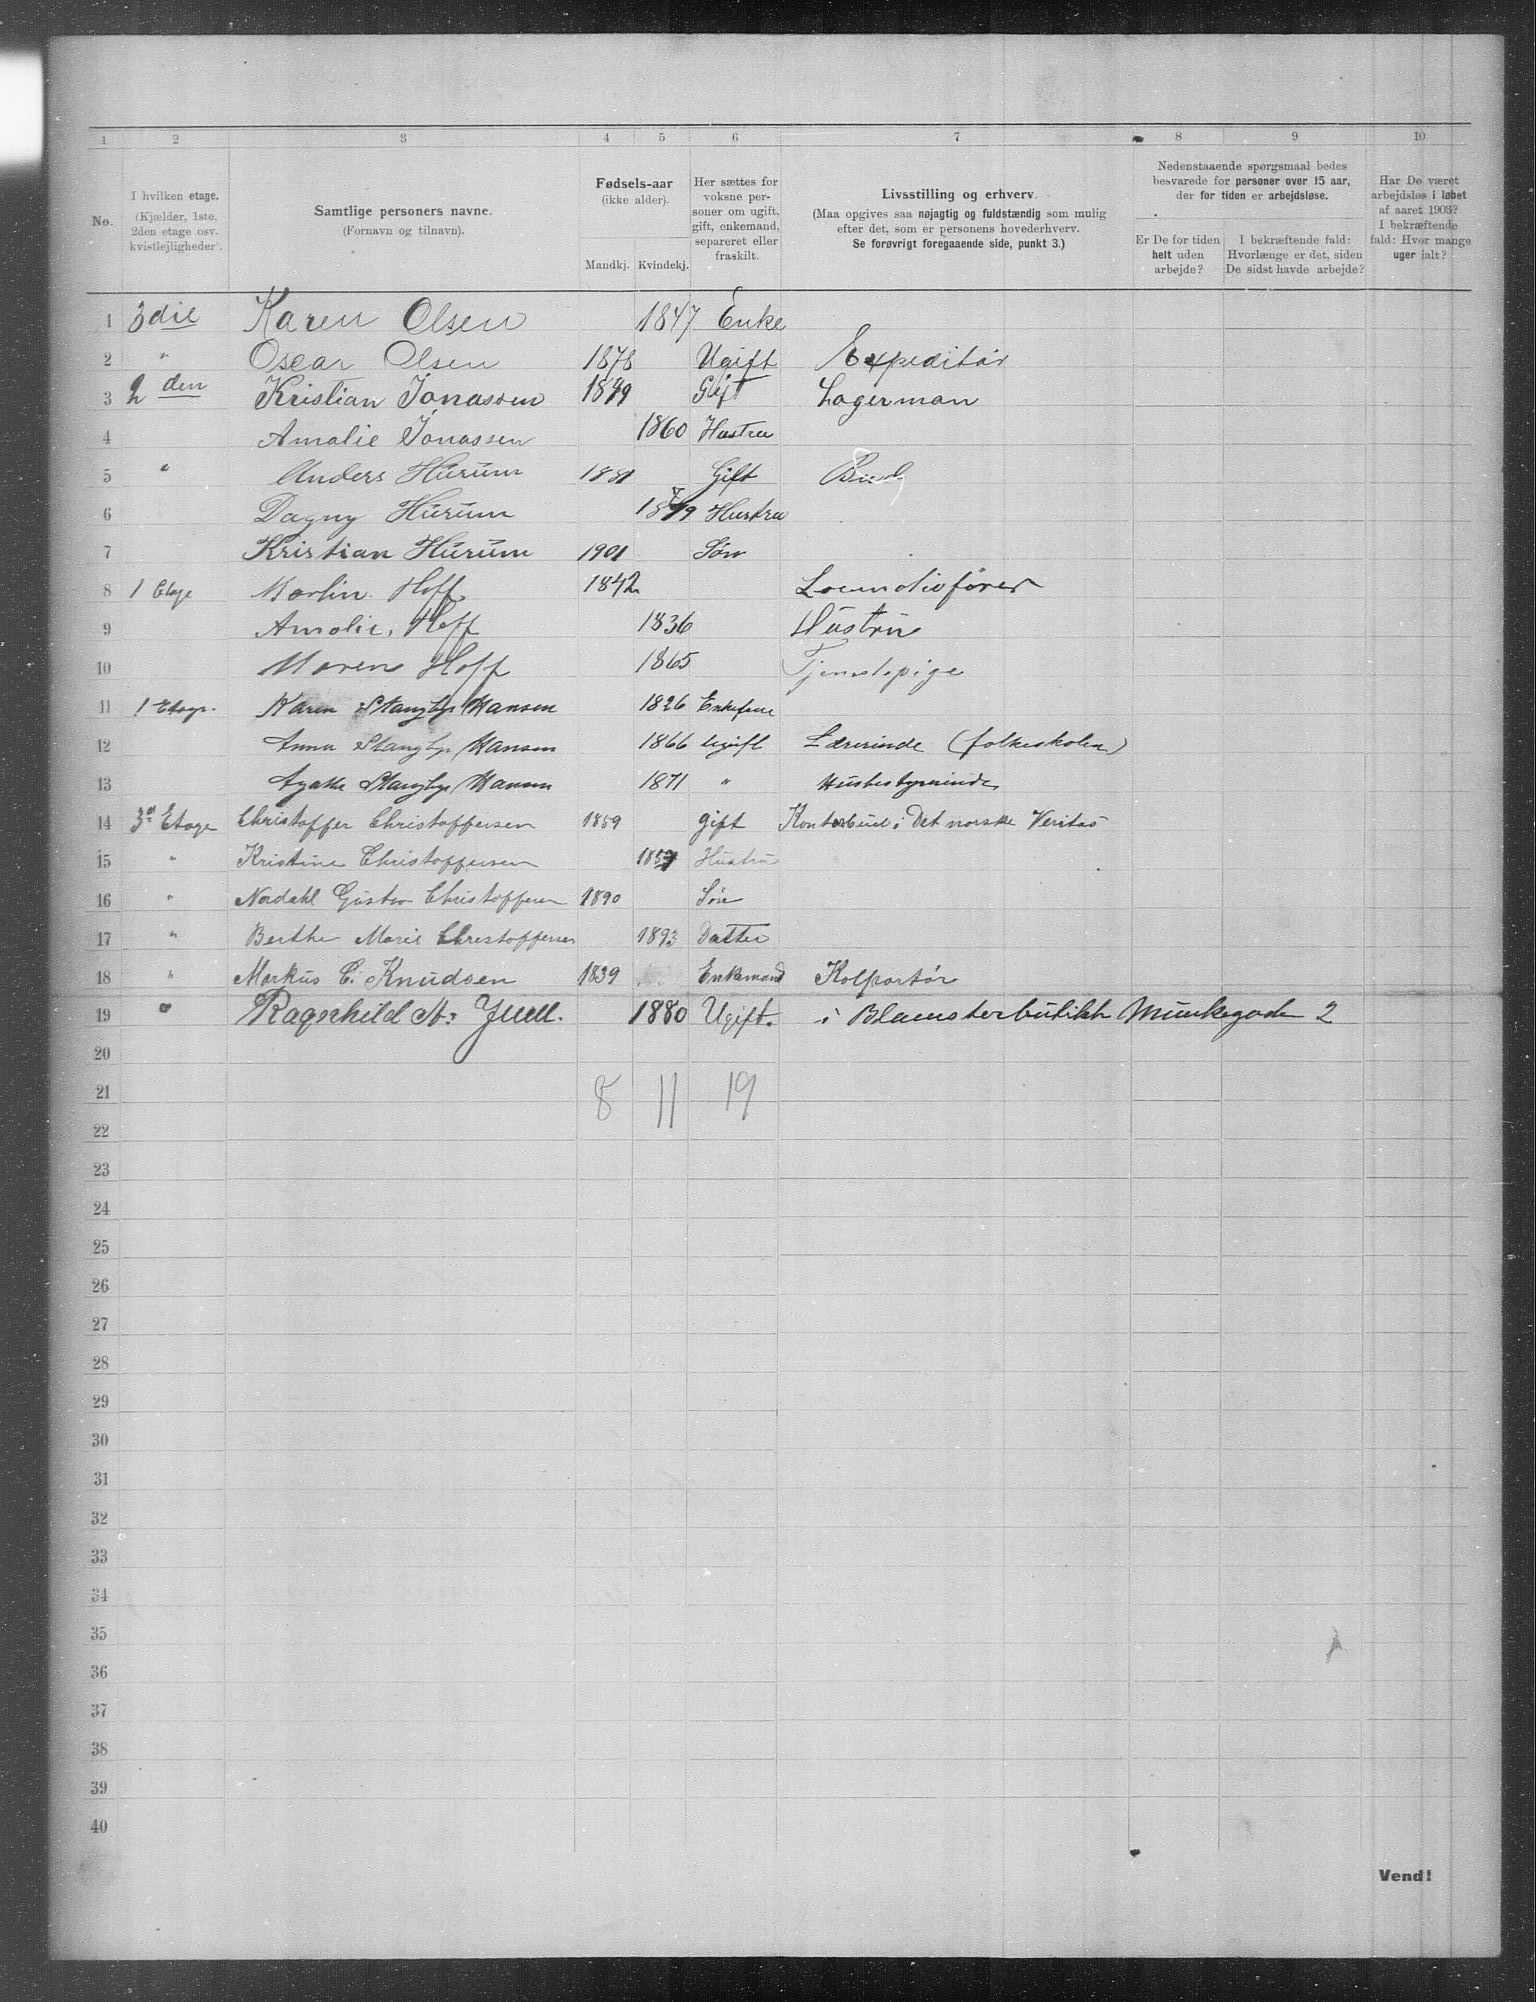 1 2 3 4 5 6 7 8 9 10
No.
I hvilken etage.
(Kjælder, 1ste, 2den etage osv. kvistlejligheder).
Samtlige personers navne.
(Fornavn og tilnavn).
Fødsels-aar
(ikke alder).
Mandkj. Kvindekj.
Her sættes for voksne personer om ugift, gift, enkemand, separeret eller fraskilt.
Livsstilling og erhverv
(Maa opgives saa nøjagtig og fuldstændig som mulig
efter det, som er personens hovederhverv.
Se forøvrigt foregaaende side, punkt 3.)
Nedenstaaende spørgsmaal bedes
besvarede for personer over 15 aar,
der for tiden er arbejdsløse.
Er De for tiden helt uden arbejde?
I bekræftende fald: Hvorlænge er det, siden De sidst havde arbejde?
Har De været arbejdsløs i løbet af aaret 1903? I bekræftende fald: Hvor mange uger ialt?
1 3die Karen Olsen 1847 Enke
2 " Oscar Olsen 1878 Ugift Expeditør
3 2den Kristian Jonassen Gift Lagerman
4 Amalie Jonassen 1860 Hustru
5 " Anders Hurum 1881 Gift Bud
6 Dagny Hurum 1879 Hustru
7 Kristian Hurum 1901 Søn
8 1 Etage Martin Hoff 1842 Locmotivfører
9 Amalie, Hoff 1836 Hustru
10 Maren Hoff 1865 Tjenstepige
11 1 Etage. Karen Stangby Hansen 1826 Enkefrue
12 Anna Stangby Hansen 1866 ugift Lærerinde (folkeskolen)
13 Agathe Stangby Hansen 1871 " Husbestyrerinde
14 3d Etage Christoffer Christoffersen 1859 gift Kontorbud i Det norske Veritas
15 " Kristine Christoffersen Hustru
16 " Nordahl Gustav Christoffersen 1890 Søn
17 " Berthe Marie Christoffersen 1893 Datter
18 " Markus C. Knudsen 1839 Enkemand Kolportør
19 " Ragnhild A: Juell. 1880 Ugift. i Blomsterbutikk Munkegaden 2
20
21 8 11 19
22
23
24
25
26
27
28
29
30
31
32
33
34
35
36
37
38
39
40
Vend!